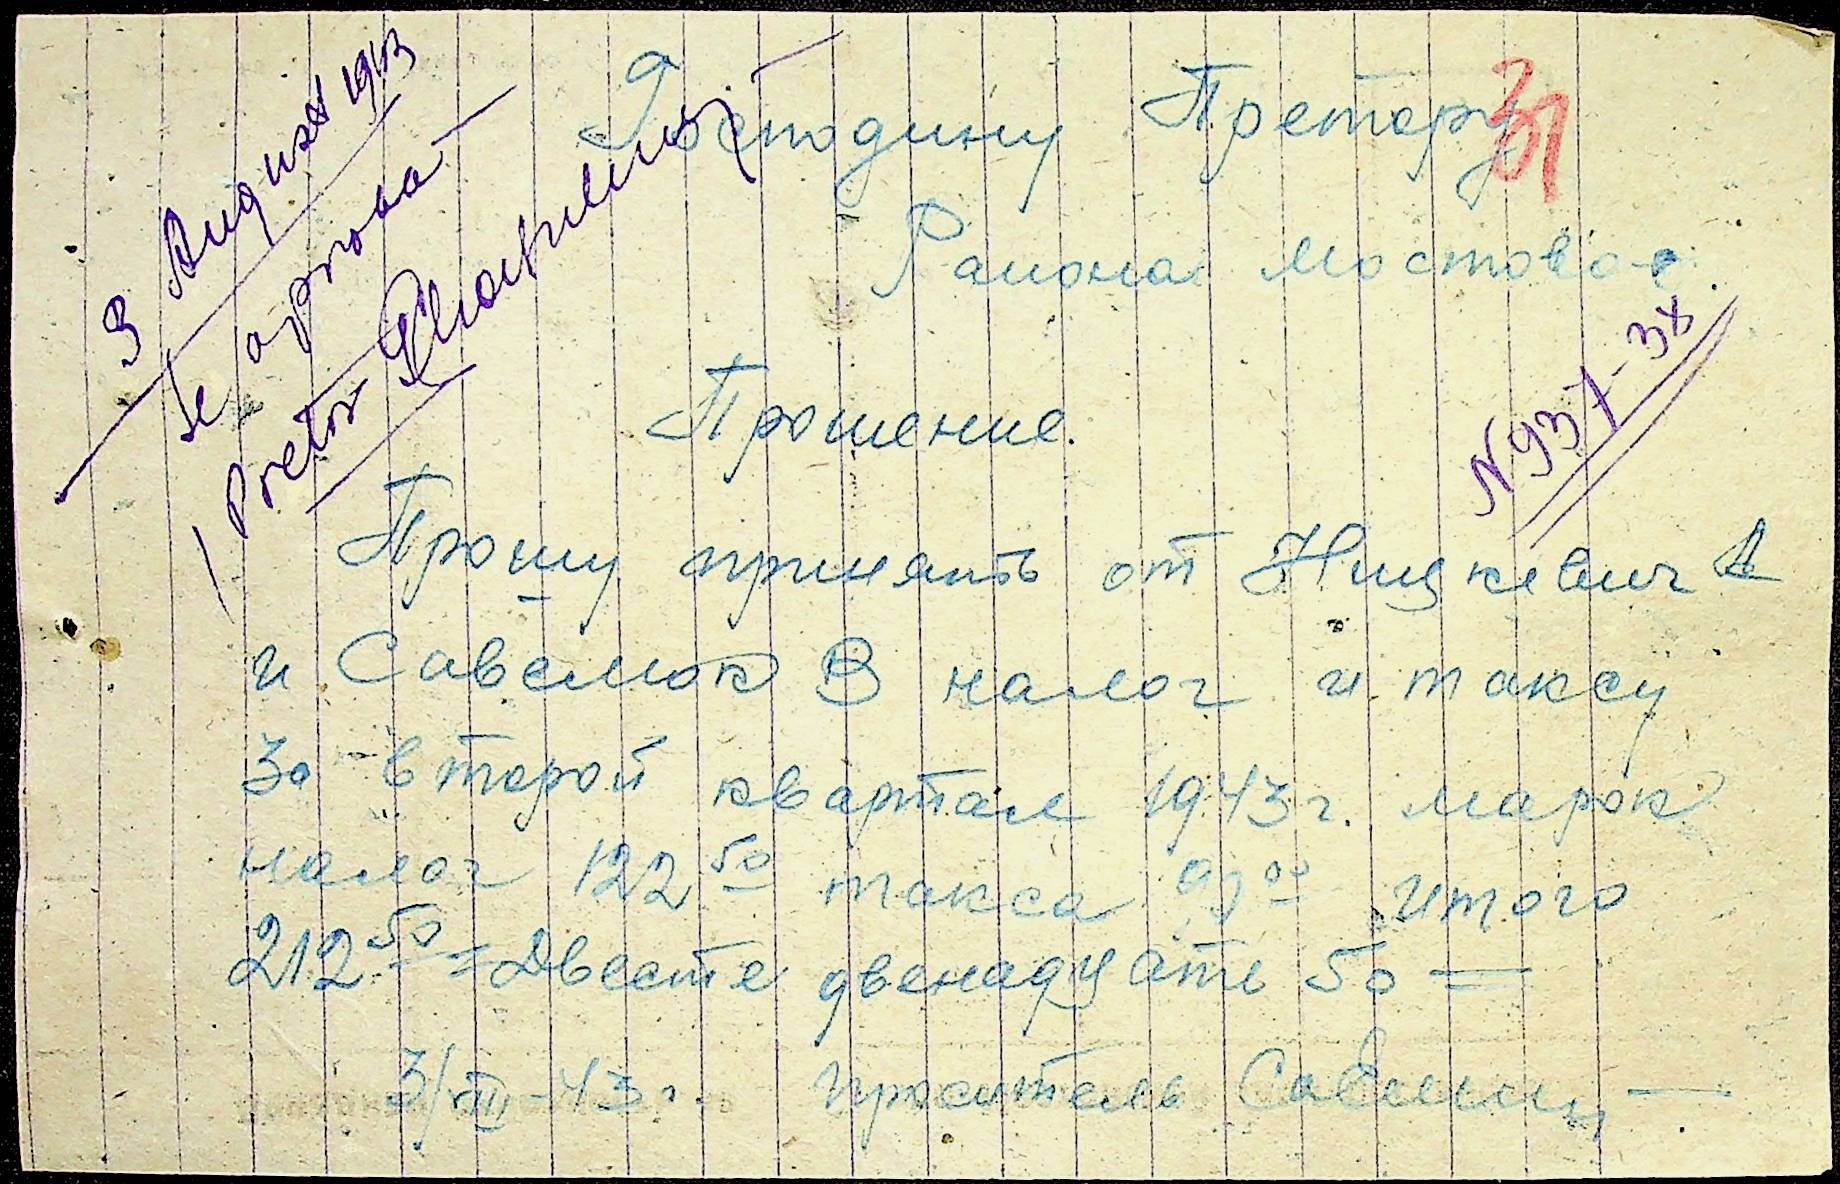 3 August 1943
Se aproba
Pretor
31
Господину Претору
Района Мостового.
N 937-38
Прошение.
Прошу принять от Ницкевич А
и Савелюк В налог и таксу
за второй квартал 1943 г. марок
налог 122 50 такса 90 00 Итого
212 50 = Двести двенадцать 50 =
3/VIII-43 г. проситель